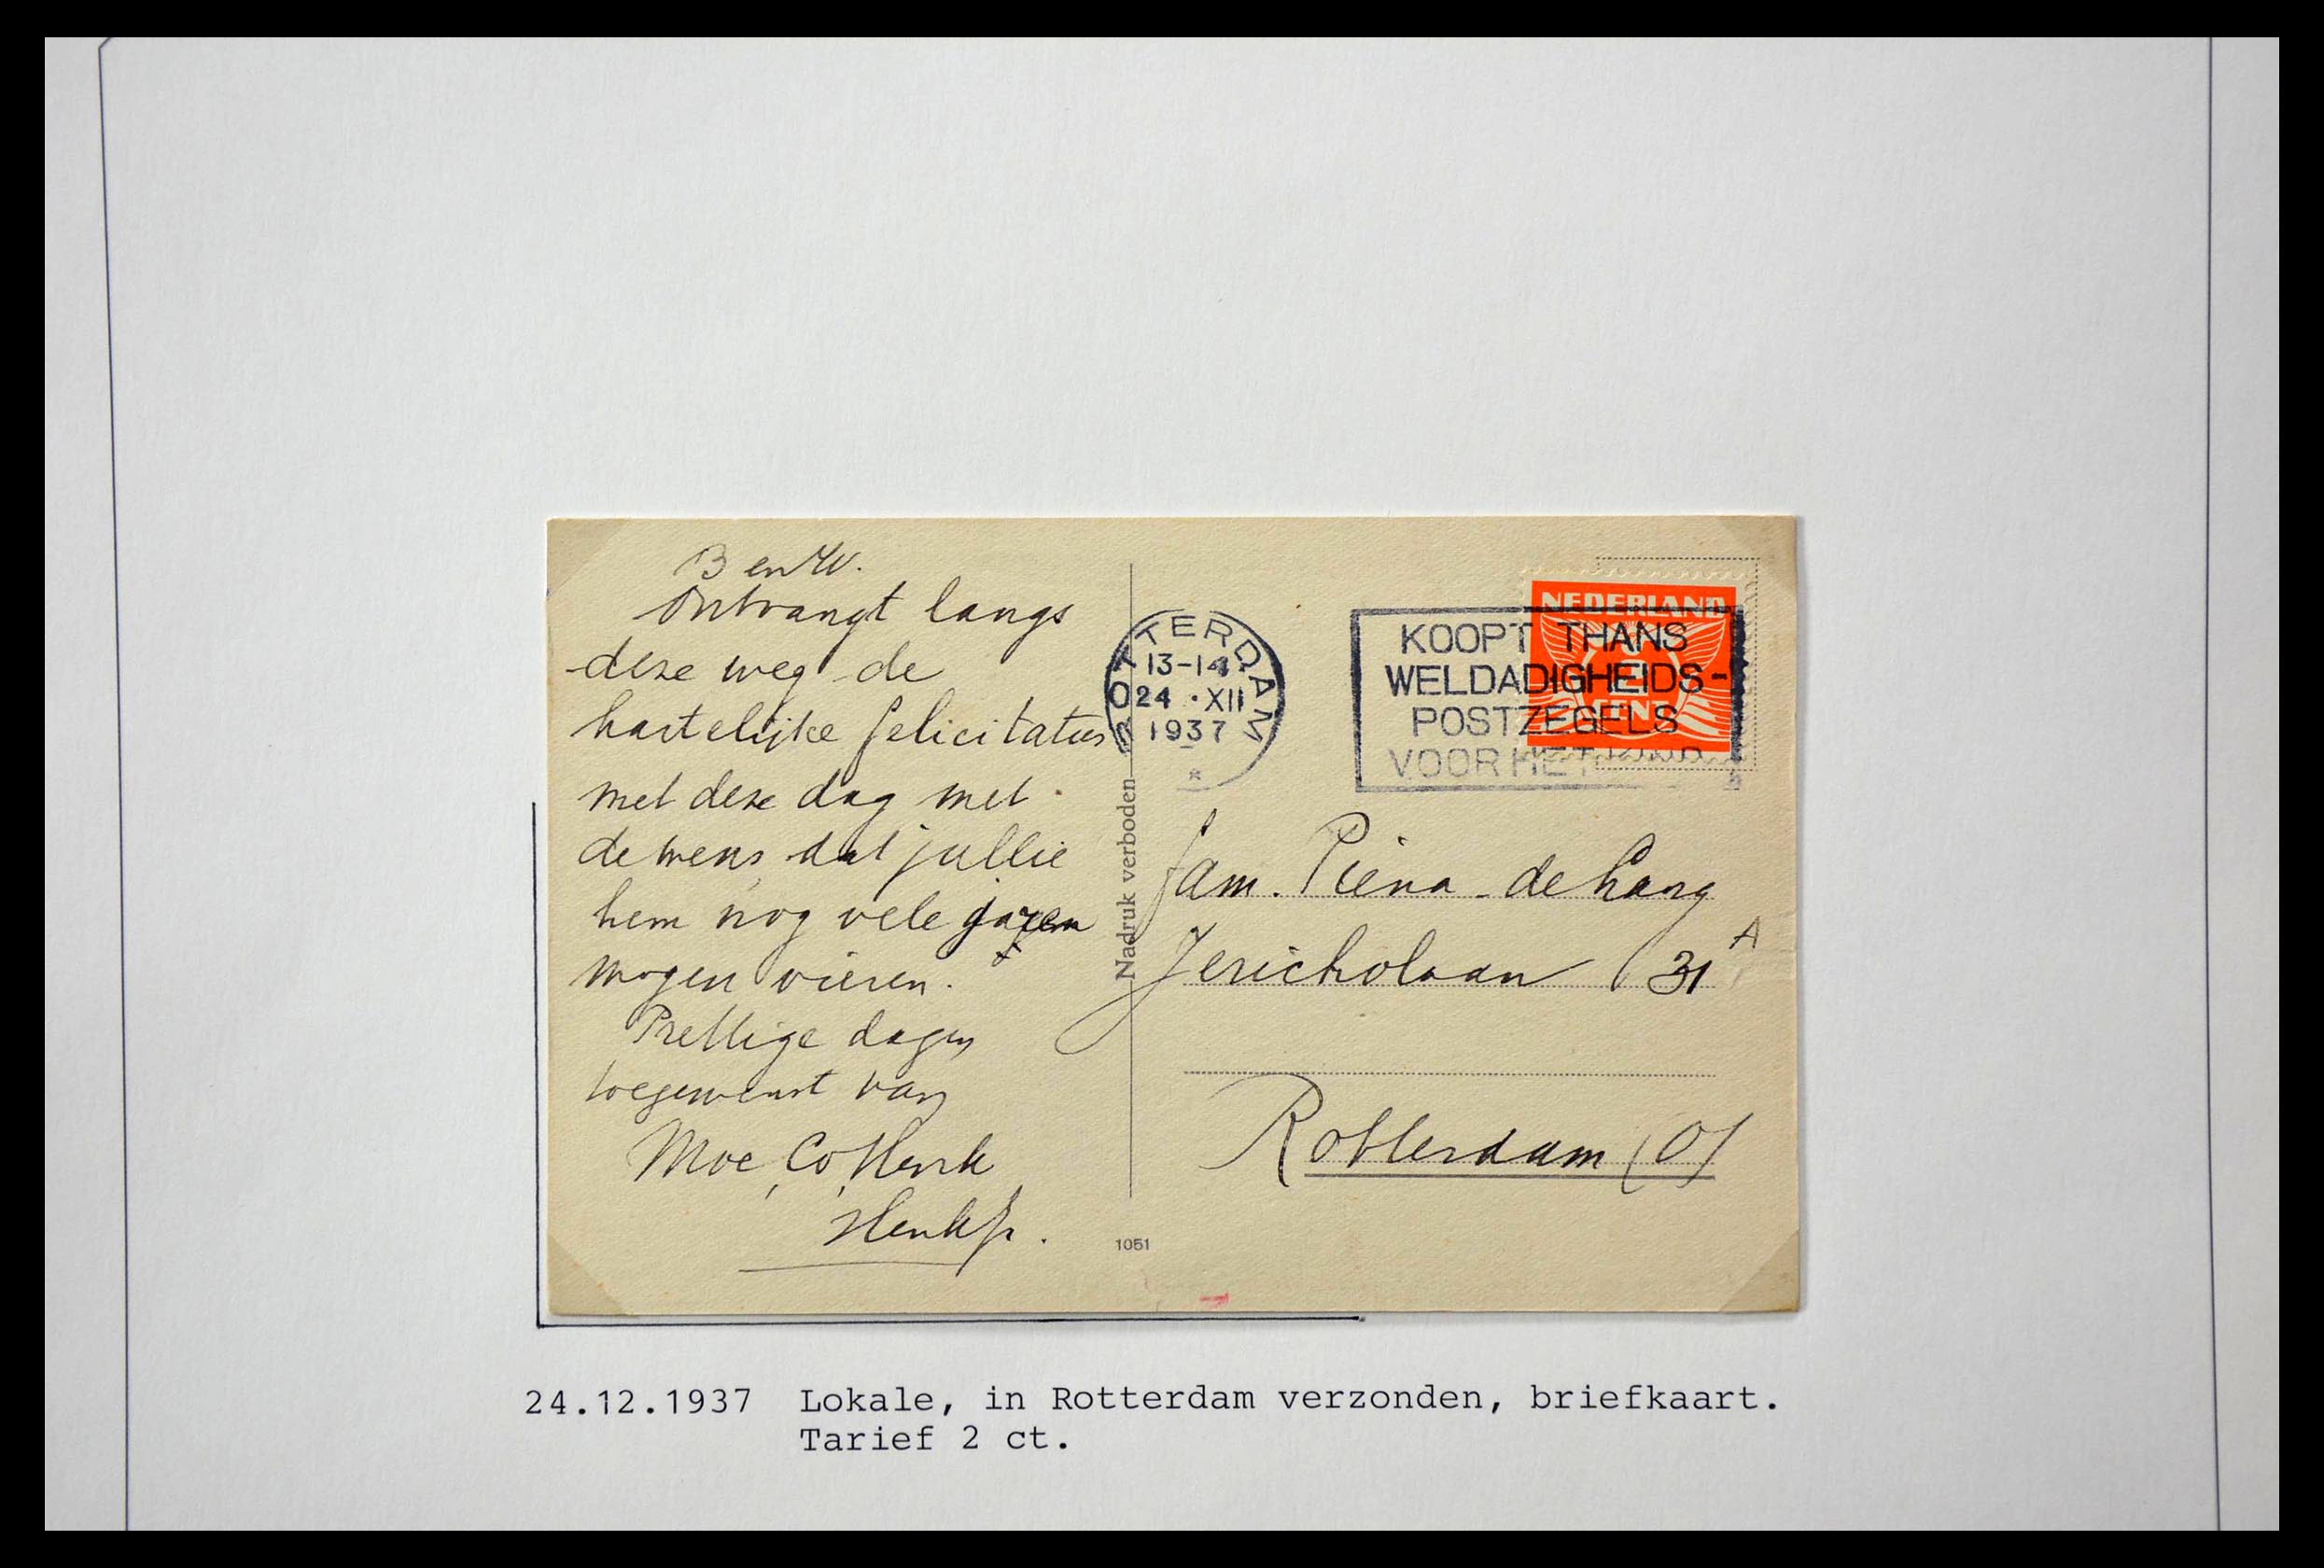 B en W.
Ontvangt langs
deze weg de
hartelijke felicitaties
met deze dag met
de wens dat jullie
hem nog vele jaren
mogen vieren.
Prettige dagen
toegewenst van
Moe, Co, Henk
Henk Jr.
Nadruk verboden
1051
ROTTERDAM
13-14
24 · XII
1937
*
NEDERLAND
CENT
KOOPT THANS
WELDADIGHEIDS-
POSTZEGELS
VOOR HET
fam. Piena - de Lang
Jericholaan 31 A
Rotterdam (O)
24.12.1937 Lokale, in Rotterdam verzonden, briefkaart.
Tarief 2 ct.